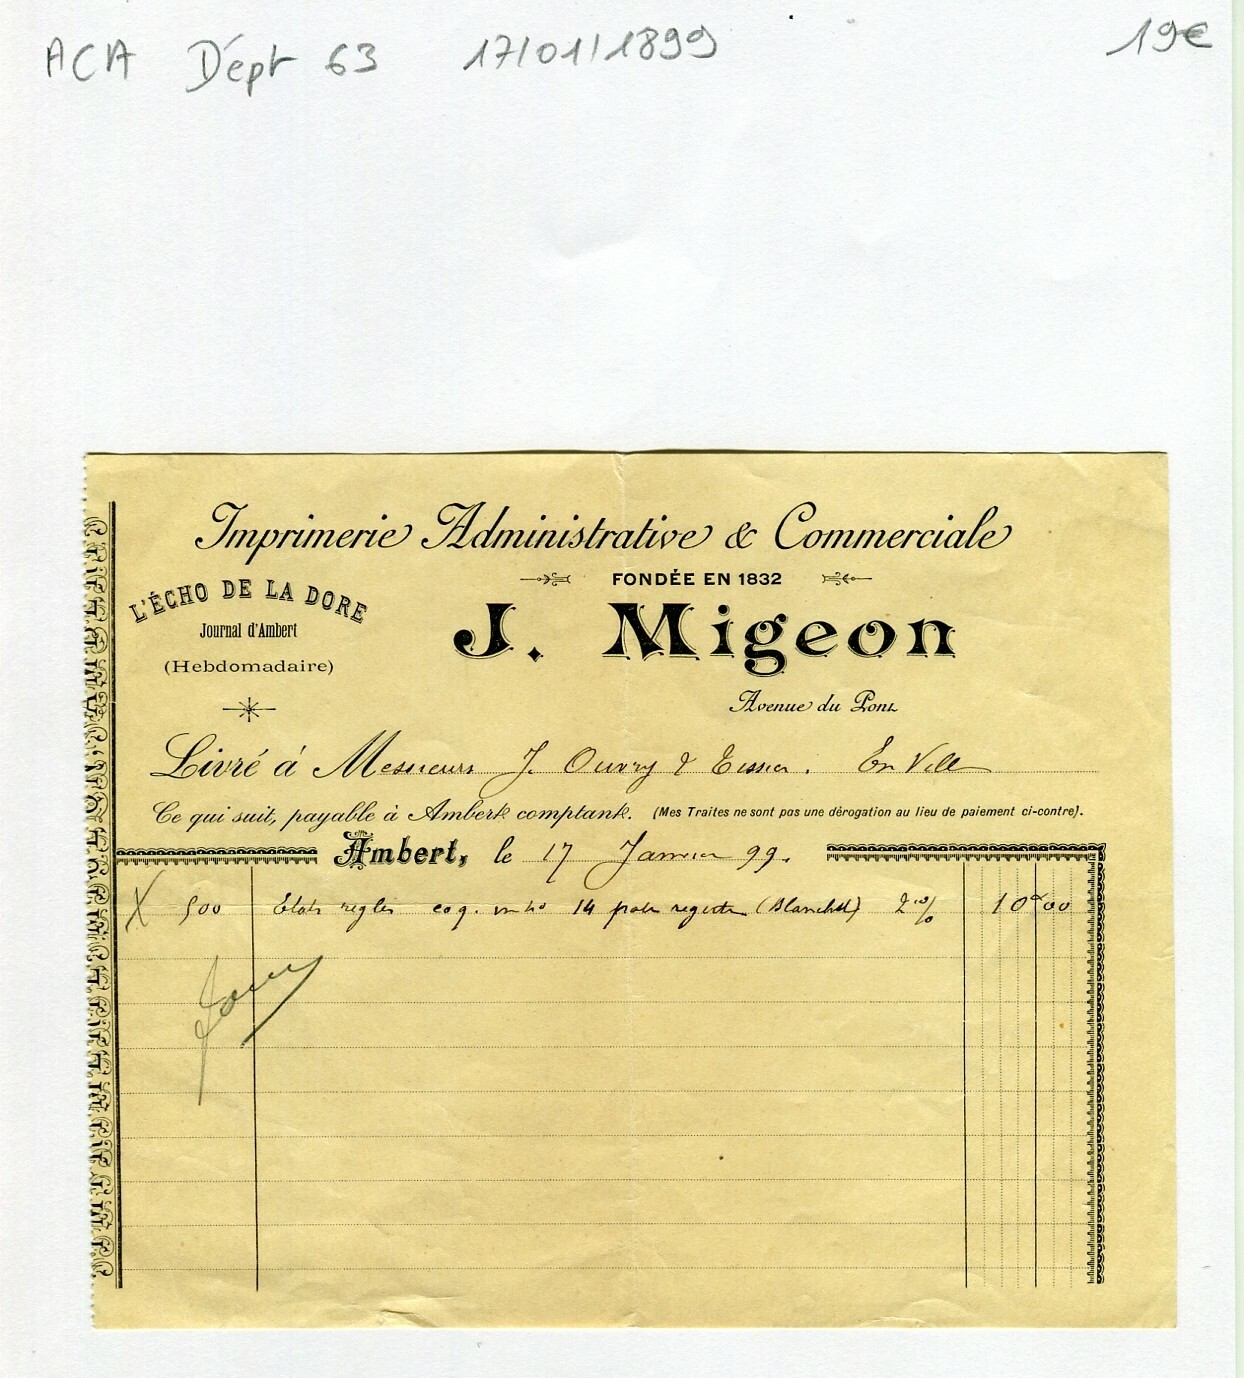 ACA Dépt 63 17/01/1899 19€
Imprimerie Administrative & Commerciale
FONDÉE EN 1832
L'ÉCHO DE LA DORE
Journal d'Ambert
(Hebdomadaire)
J. Migeon
Avenue du Pont
Livré à Messieurs J. Ouvry & Tissier. En Ville
Ce qui suit, payable à Ambert comptant. (Mes Traites ne sont pas une dérogation au lieu de paiement ci-contre).
Ambert, le 17 Janvier 99.
X 500 Etats réglés coq. 14 (Blanchet) 2 % 10 00